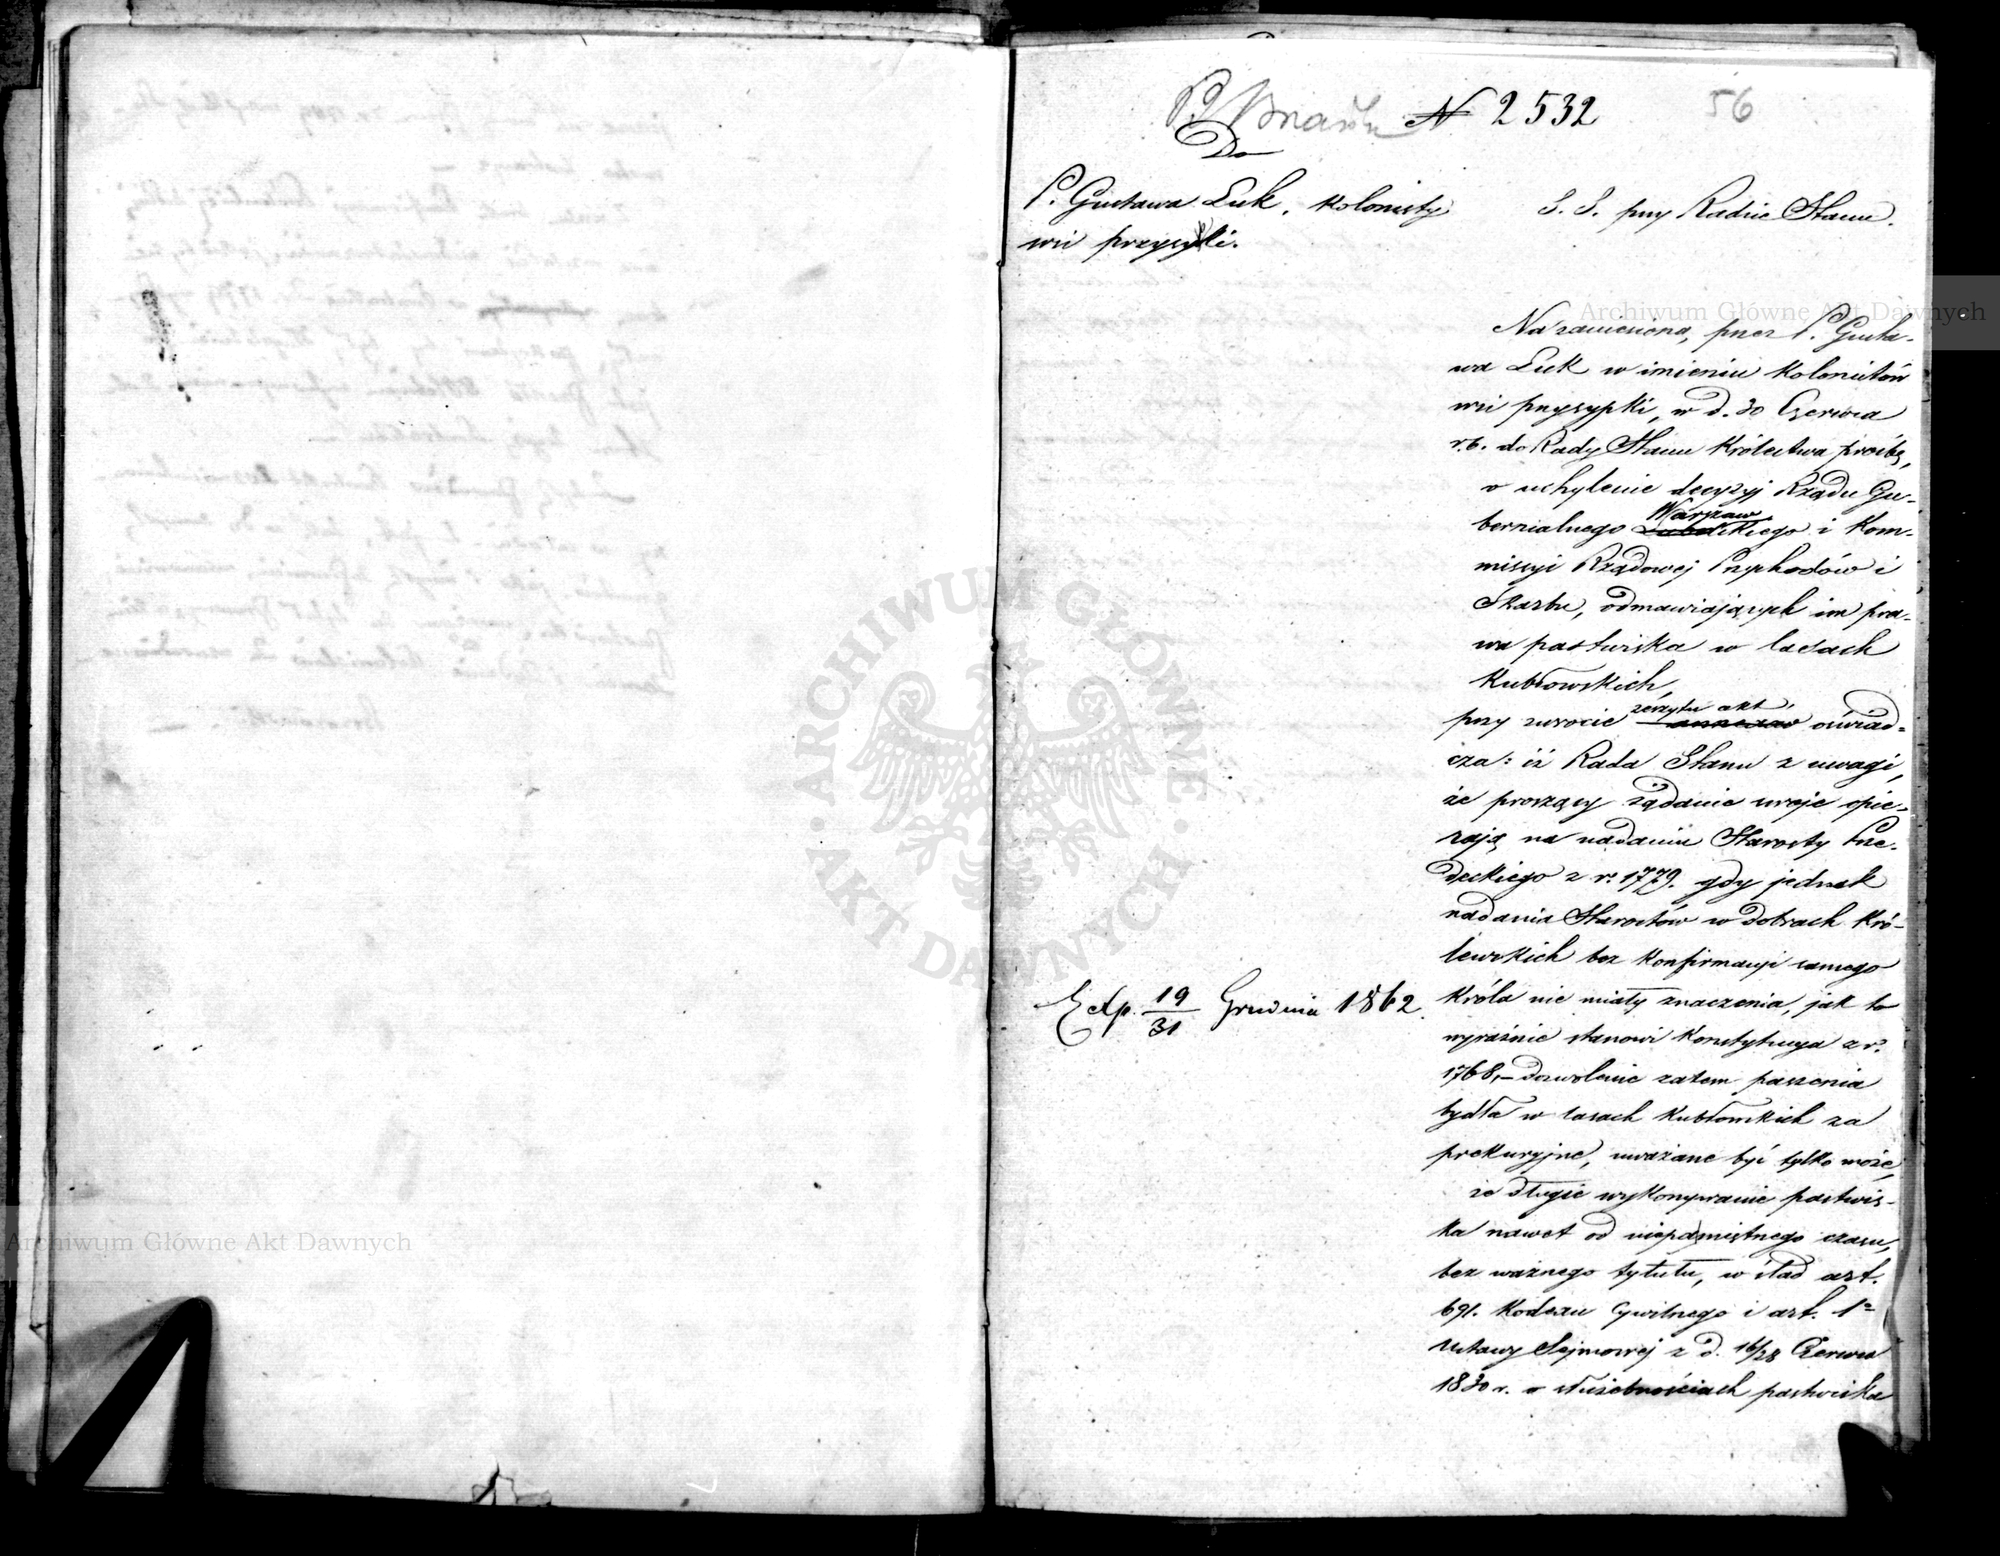 № 2532
56
Do
P. Gustawa Luk, kolonisty
wsi przysypki.
S. S. przy Radzie Stanu.
Na zaniesioną przez P. Gusta-
wa Luk w imieniu kolonistów
wsi przysypki, w d. 30 Czerwca
r.b. do Rady Stanu Królestwa prośbę,
o uchylenie decyzyj Rządu Gu-
bernialnego Warszawskiego i Kom-
missyi Rządowej Przychodów i
Skarbu, odmawiających im pra-
wa pastwiska w lasach
Kubłowskich,
przy zwrocie zeszytu akt oświad-
cza: iż Rada Stanu z uwagi,
że proszący żądanie swoje opie-
rają na nadaniu Starosty Prze-
deckiego z r. 1779. gdy jednak
nadania Starostów w dobrach Kró-
lewskich bez konfirmacyi samego
Króla nie miały znaczenia, jak to
wyraźnie stanowi Konstytucya z r.
1768,– dozwolenie zatem paszenia
bydła w lasach Kubłowskich za
prekaryjne, uważane być tylko może,
że długie wykonywanie pastwis-
ka nawet od niepamiętnego czasu,
bez ważnego tytułu, w ślad art.
691. Kodexu Cywilnego i art. 1º
Ustawy Sejmowej z d. 16/28 Czerwca
1830 r. o służebnościach pastwiska
Exp. 19/31 Grudnia 1862.
Archiwum Główne Akt Dawnych
Archiwum Główne Akt Dawnych
ARCHIWUM GŁÓWNE
AKT DAWNYCH